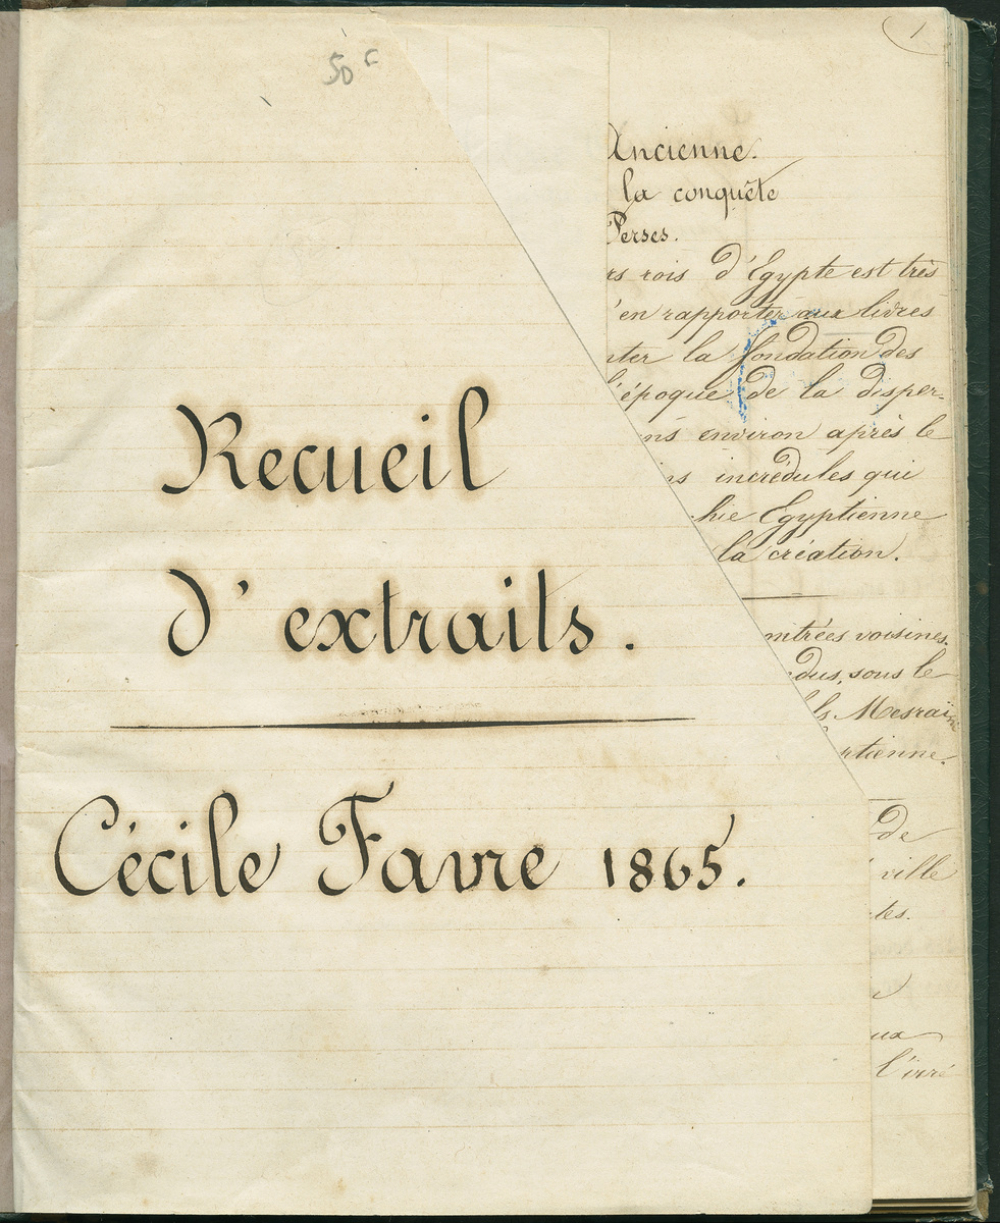 50 c
Recueil
d'extraits.
Cécile Favre 1865.
1
Ancienne.
la conquête
Perses.
rs rois d'Egypte est très
'en rapporter aux livres
ter la fondation des
l'époque de la disper-
ns environ après le
ns incrédules qui
hie Egyptienne
la création.
ntrées voisines.
dus, sous le
ls Mesraïm
ptienne.
de
ville
tes.
ux
l'irré